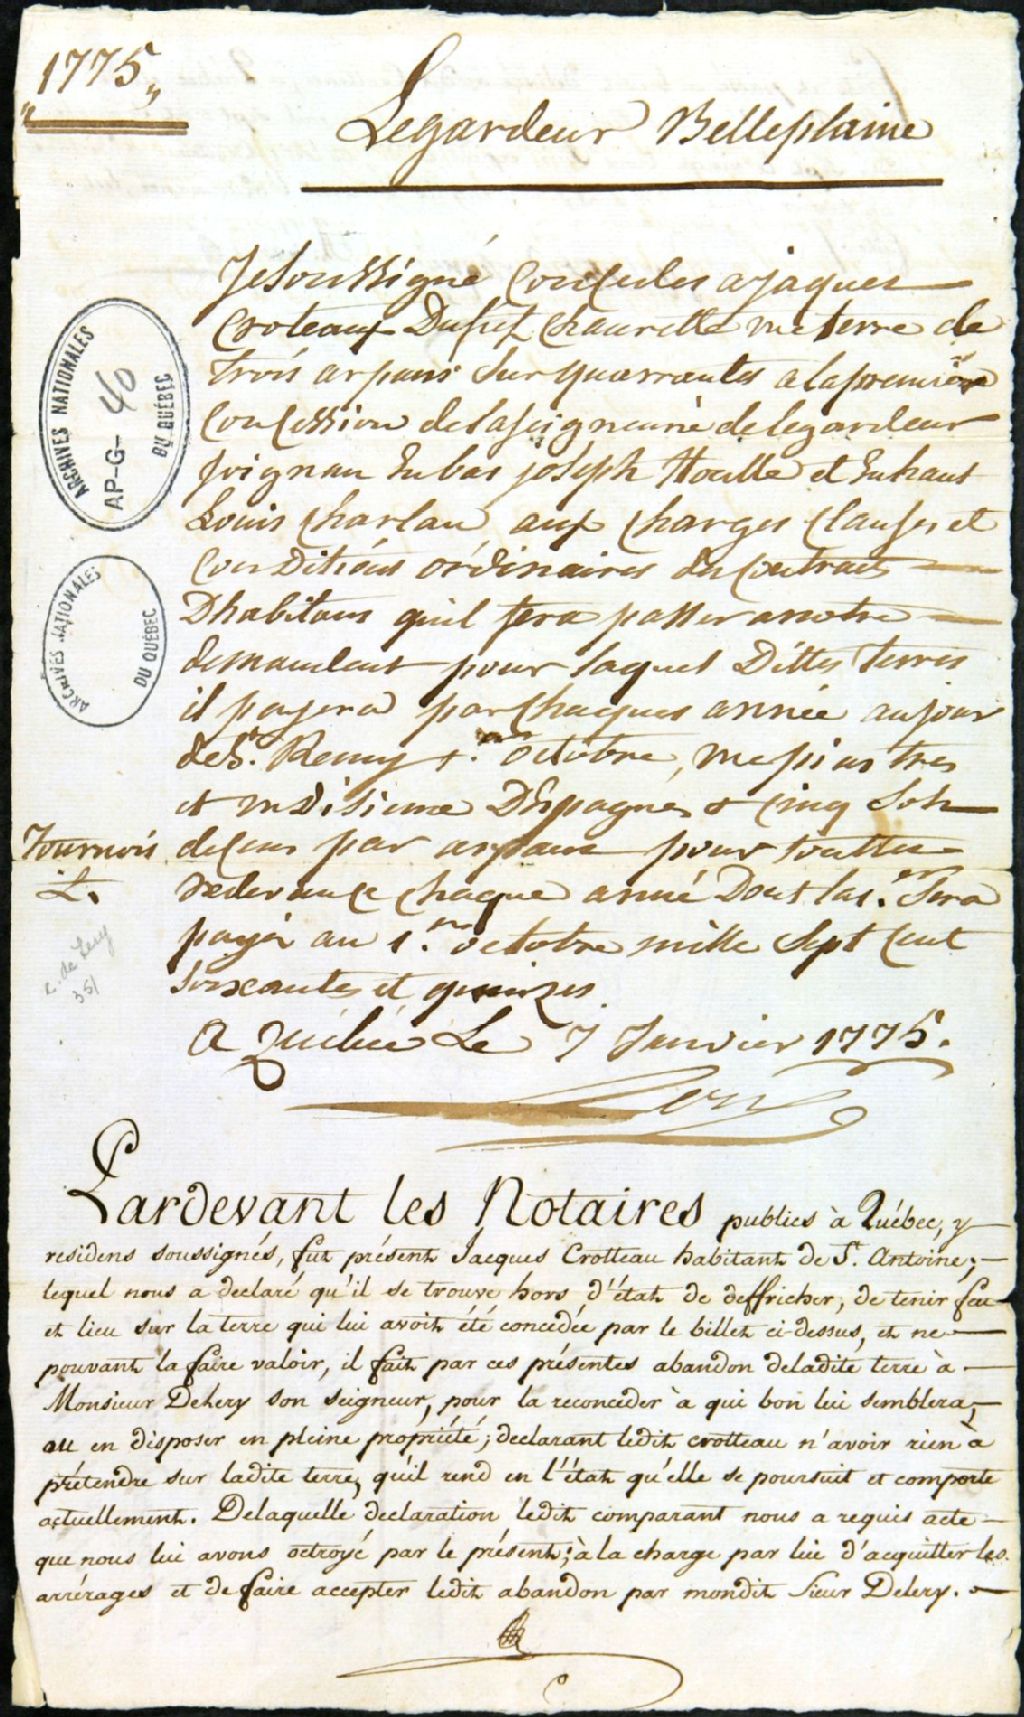 "1775"
Legardeur Belleplaine
Je Soussigné Concedes a jaques
Croteaux Dusuet Chaurette une terre de
trois arpans Sur quarrantes a la premiere
Concession de la seigneurie de legardeur
joignan En bas joseph Houlle et En haut
Louis Charlan aux charges Clauses et
Conditions ordinaires du Contrat
Dhabitans quil fera passer a notre
demandent pour laquel Dittes terres
il payera par chaques année au jour
de St. Remy 1.er octobre, une piastres
et un Disieme D'Espagnes & cinq Sols
Tournois de Cens par arpans pour touttes
L. redevance chaque anné Dont la 1.ere Sera
payér au 1.er octobre mille Sept Cent
Soixantes et quinzes.
A Québec Le 7 Janvier 1775.
Lery
ARCHIVES NATIONALES
DU QUÉBEC
AP-G- 40
ARCHIVES NATIONALES
DU QUÉBEC
C. de Lery
351
Pardevant les Notaires publics à Québec, y
residens soussignés, fut présent Jacques Crotteau habitant de St. Antoine;
lequel nous a declaré qu'il se trouve hors d'état de deffricher, de tenir feu
et lieu sur la terre qui lui avoit été concédée par le billet ci-dessus, et ne
pouvant la faire valoir, il fait par ces présentes abandon de ladite terre à
Monsieur Delery son seigneur, pour la reconceder à qui bon lui semblera,
ou en disposer en pleine propriété; declarant ledit crotteau n'avoir rien à
prétendre sur ladite terre, qu'il rend en l'état qu'elle se poursuit et comporte
actuellement. De laquelle declaration ledit comparant nous a requis acte
que nous lui avons octroyé par le présent; à la charge par lui d'acquitter les
arrérages et de faire accepter ledit abandon par mondit Sieur Delery.